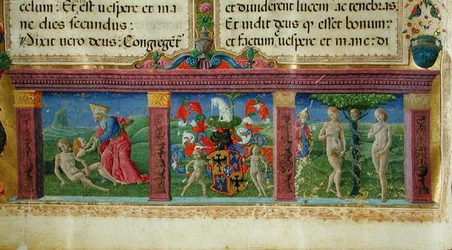 celum: Et est uespere et ma
ne dies secundus:
Dixit uero deus: Congregēt
et diuiderent lucem ac tenebras.
Et uidit deus q̄ esset bonum:
et factum uespere et mane: di